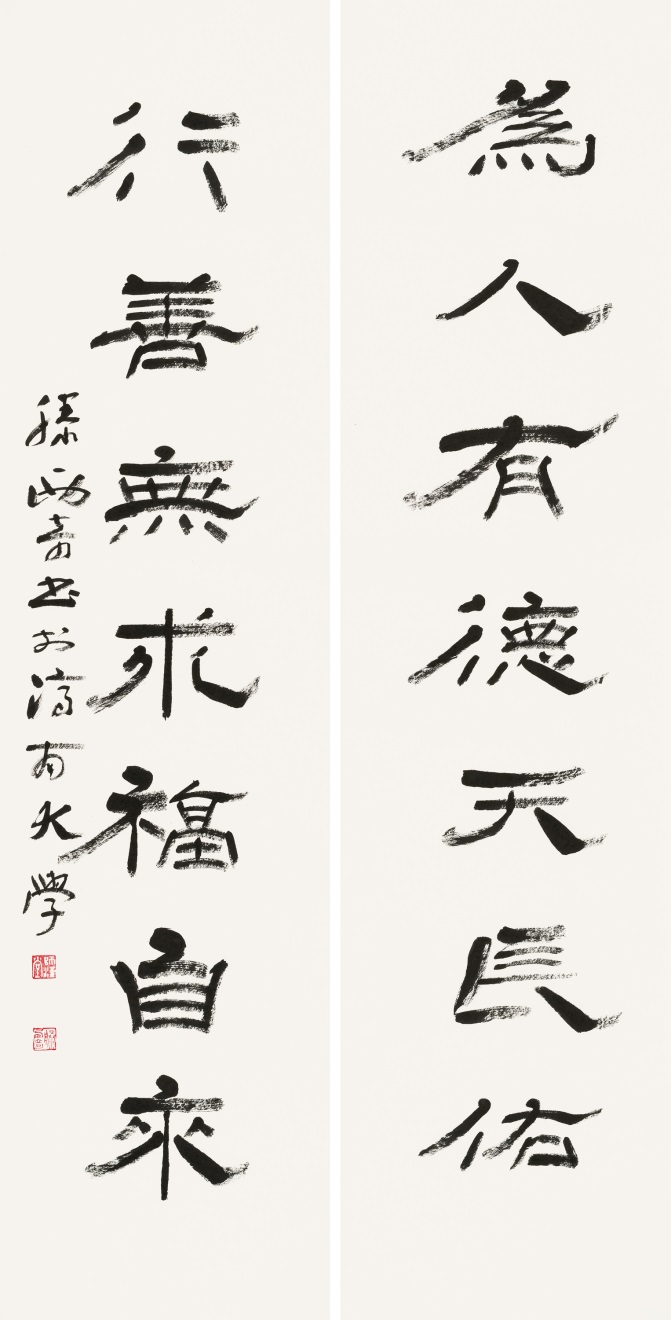 為人有德天長佑
行善無求福自來
滕西奇书於濟南大學